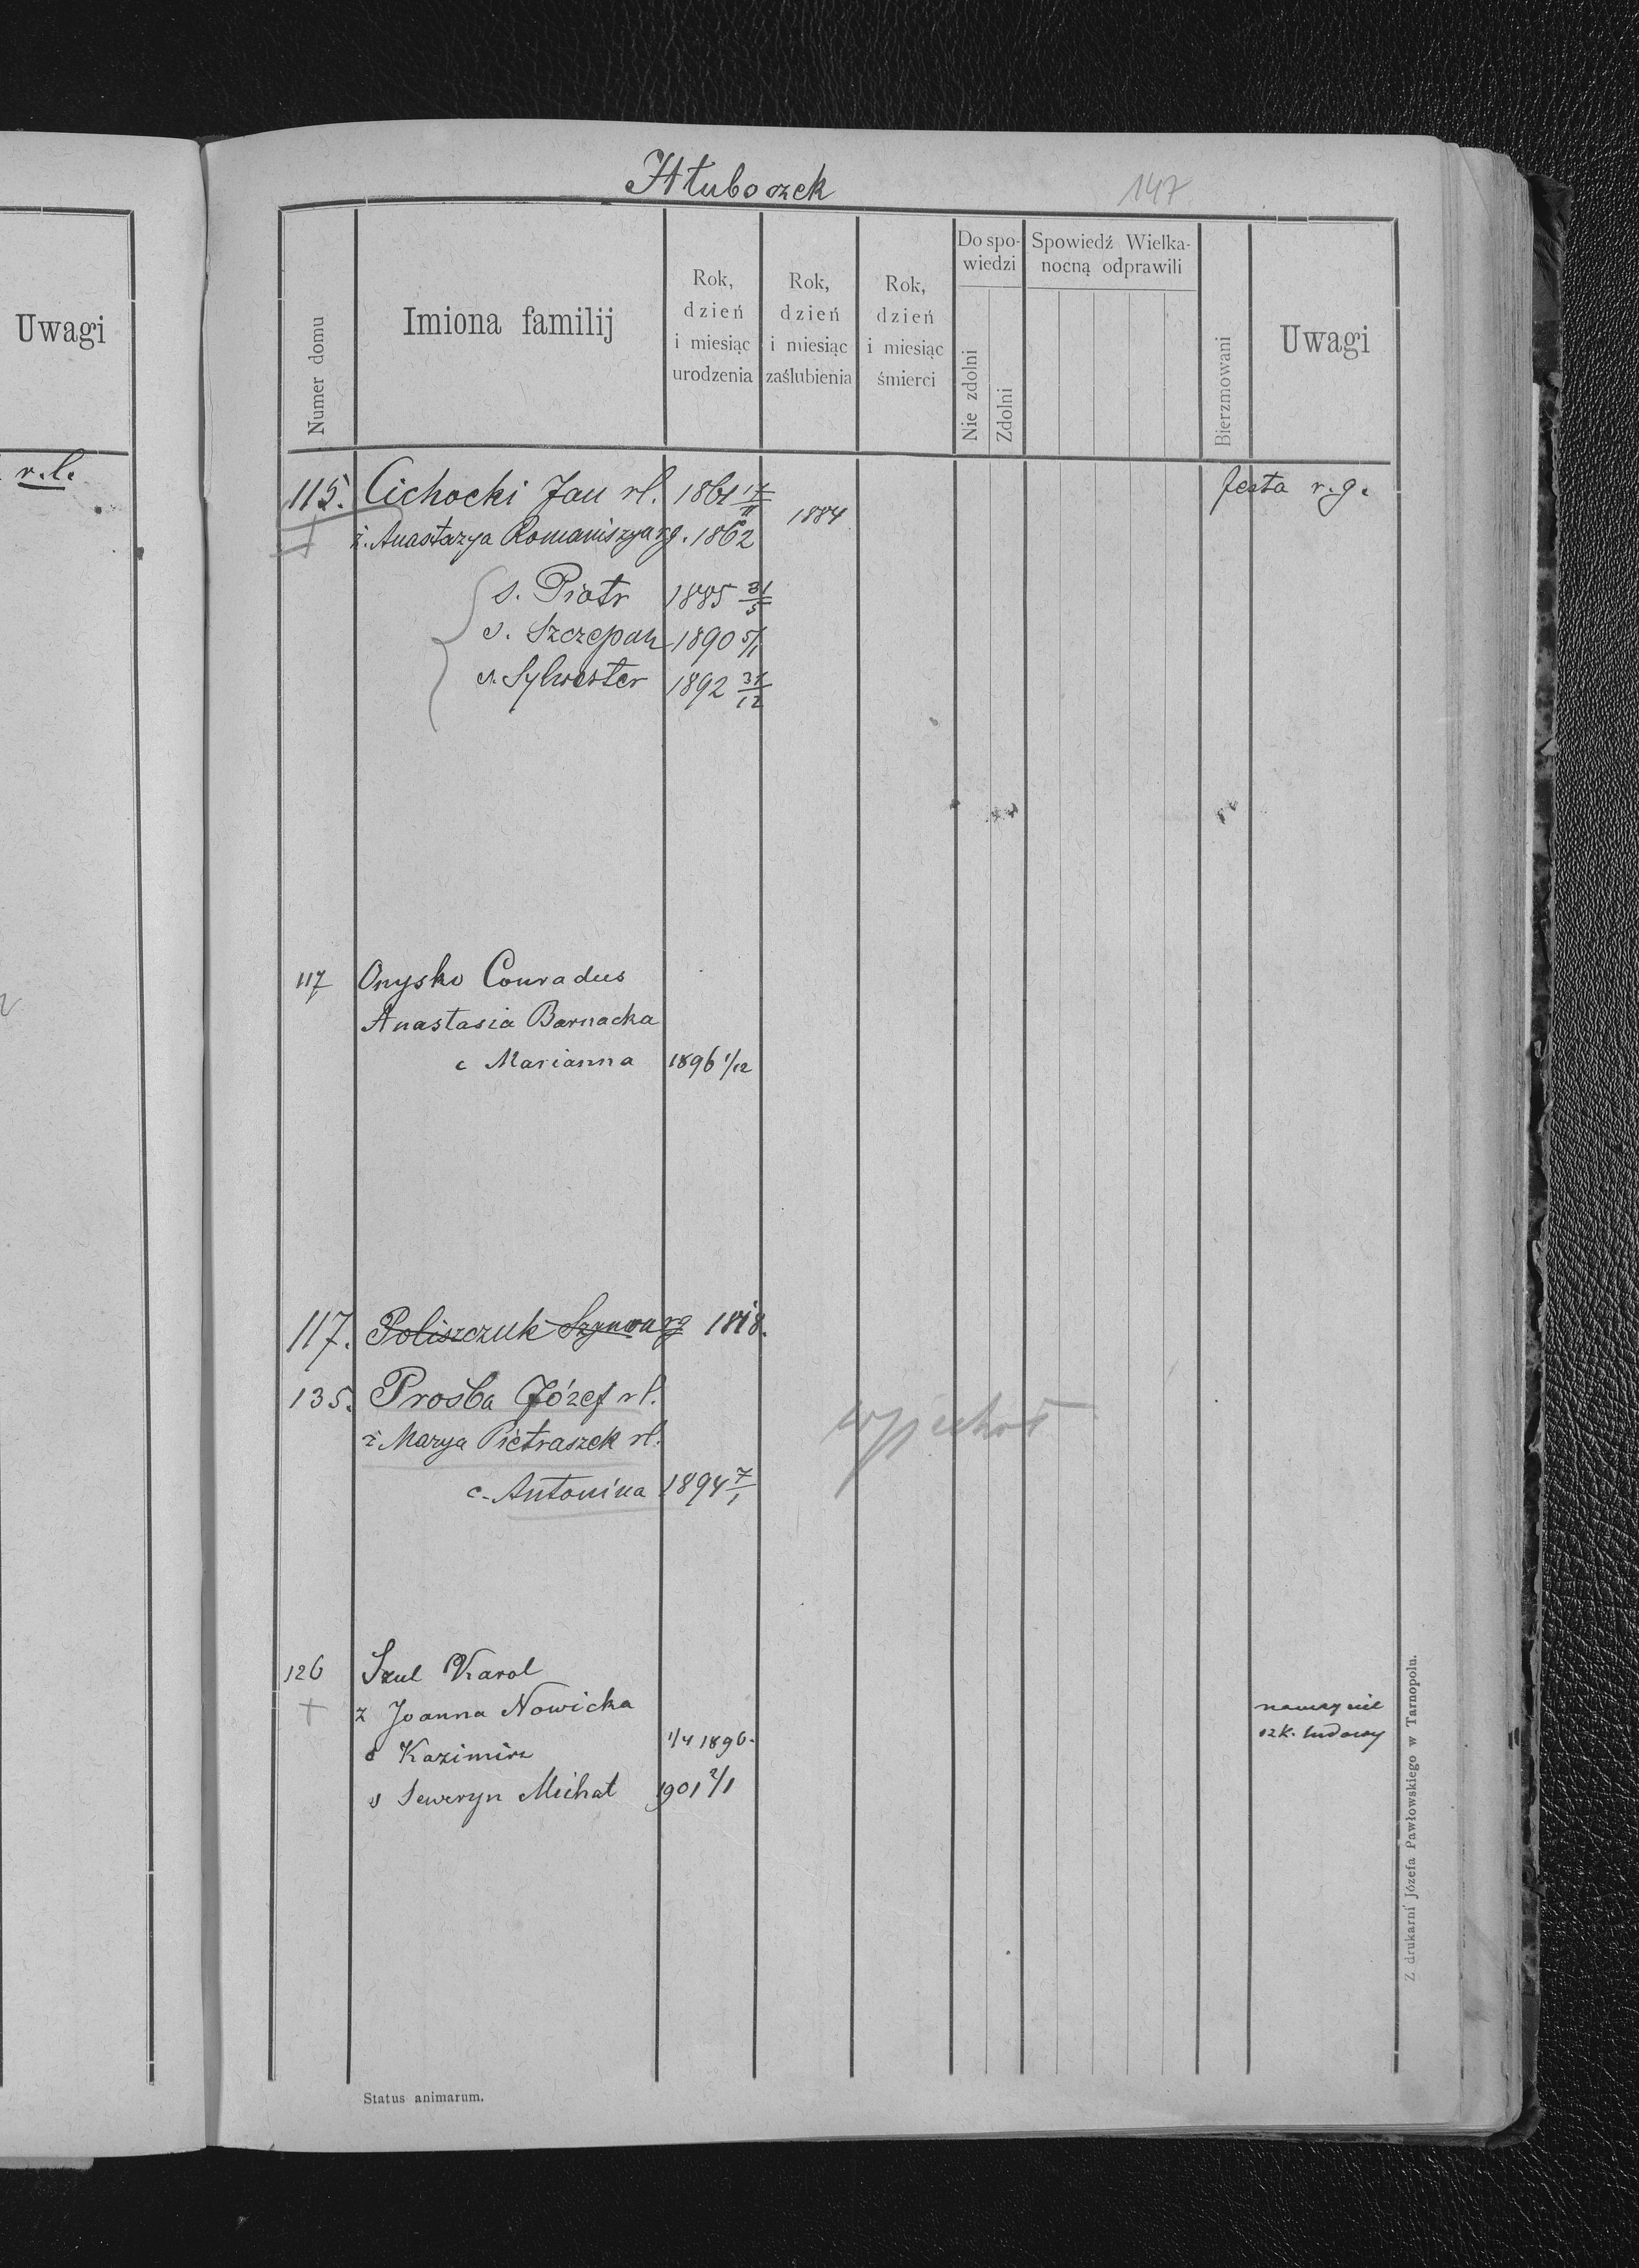 Uwagi
r.l.
Hłuboczek
147
Numer domu
Imiona familij
Rok, dzień i miesiąc urodzenia
Rok, dzień i miesiąc zaślubienia
Rok, dzień i miesiąc śmierci
Do spowiedzi
Nie zdolni
Zdolni
Spowiedź Wielkanocną odprawili
Bierzmowani
Uwagi
115. Cichocki Jan rl. 1861 17/11 festa r.g.
ż. Anastazya Romaniszyn rg. 1862 1884
s. Piotr 1885 31/5
s. Szczepan 1890 5/1
s. Sylwester 1892 31/12
117 Onysko Conradus
Anastasia Barnacka
c Marianna 1896 1/12
117. Poliszczuk Szymon rg 1818.
135. Prośba Józef rl.
ż Marya Pietraszek rl. wyjechał
c. Antonina 1894 7/1
126 Szul Karol
ż Joanna Nowicka
Kazimirz 1/4 1896.
s Seweryn Michał 1901 2/1
szk. ludowy
Status animarum.
Z drukarni Józefa Pawłowskiego w Tarnopolu.